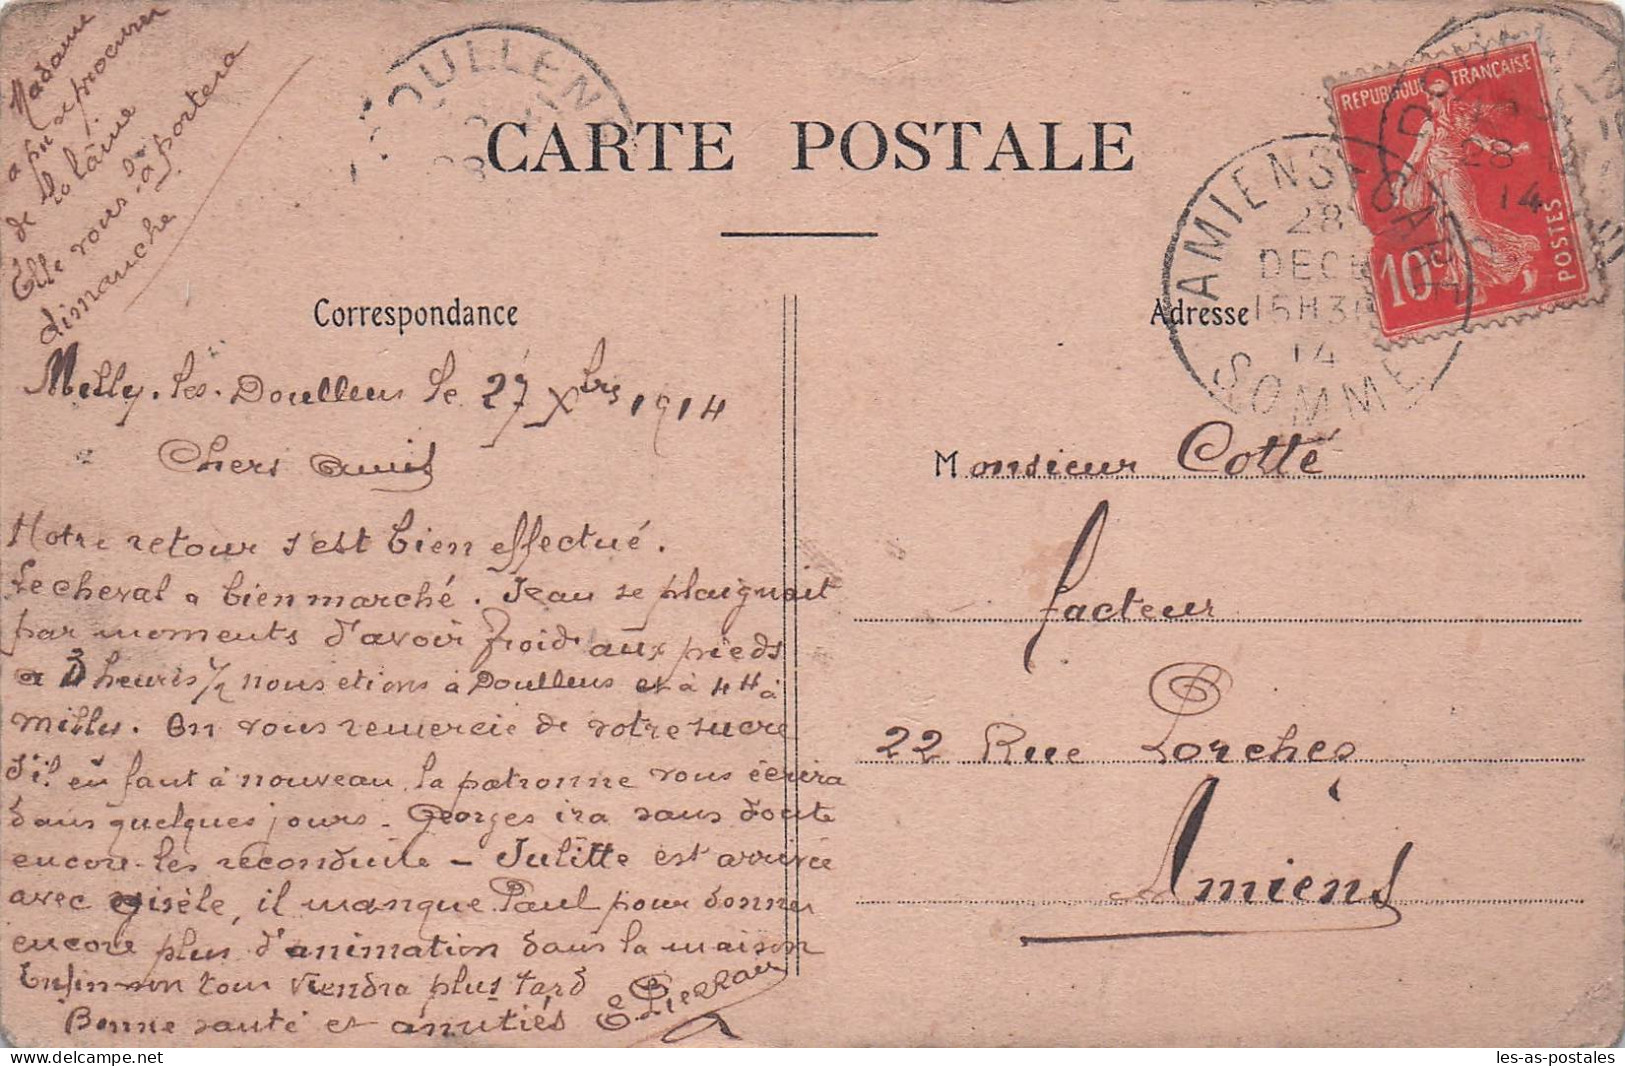 Madame
a pu se procurer
de la laine
Elle vous l'apportera
dimanche
DOULLENS
CARTE POSTALE
REPUBLIQUE FRANÇAISE
10c
POSTES
28
14
AMIENS GARE
28
DECE
15H30
14
SOMME
Correspondance
Adresse
Milly-les-Doullens le 27 Xbre 1914
Chers Amis
Notre retour s'est bien effectué.
Le cheval a bien marché. Jean se plaignait
par moments d'avoir froid aux pieds
a 3 heures ½ nous etions à Doullens et à 4H à
Milly. On vous remercie de votre sucre
s'il en faut à nouveau, la patronne vous écrira
dans quelques jours - Georges ira sans doute
encore les reconduite - Julitte est arrivée
avec Gisèle, il manque Paul pour donner
encore plus d'animation dans la maison
Enfin son tour viendra plus tard
Bonne santé et amitiés
Monsieur Cotté
facteur
22 Rue Porches
Amiens
les-as-postales
www.delcampe.net